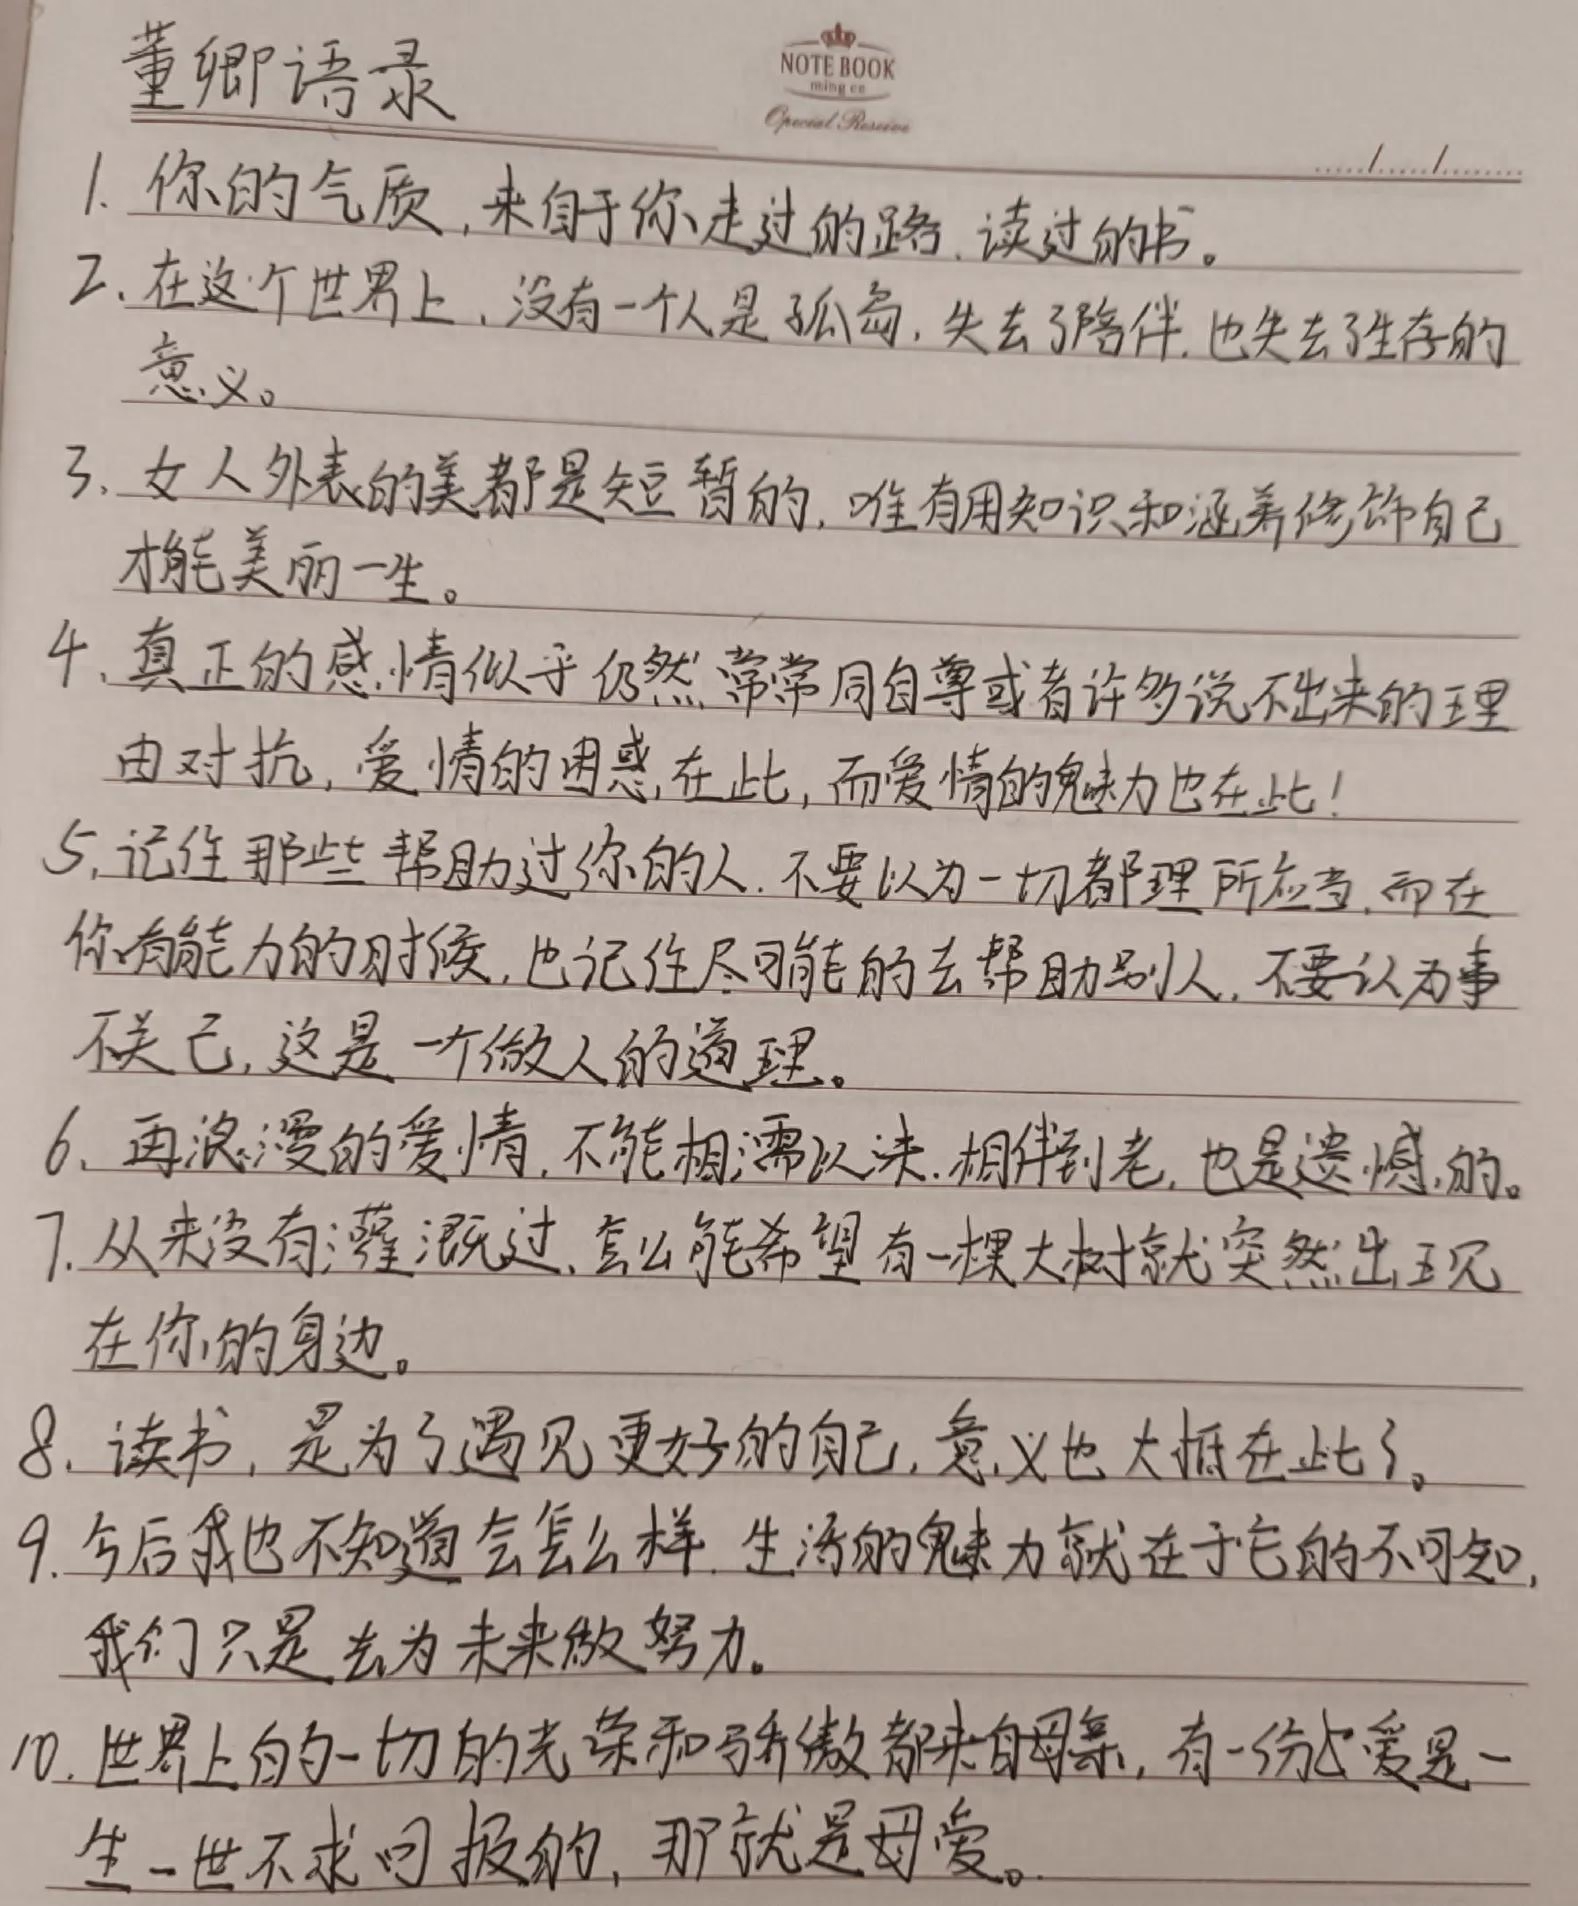 董卿语录
NOTE BOOK
ming ce
Special Reserve
...../...../.........
1. 你的气质，来自于你走过的路、读过的书。
2. 在这个世界上，没有一个人是孤岛，失去了陪伴，也失去了生存的
意义。
3. 女人外表的美都是短暂的，唯有用知识和涵养修饰自己
才能美丽一生。
4. 真正的感情似乎仍然常常同自尊或者许多说不出来的理
由对抗，爱情的困惑在此，而爱情的魅力也在此！
5. 记住那些帮助过你的人，不要以为一切都理所应当，而在
你有能力的时候，也记住尽可能的去帮助别人，不要认为事
不关己，这是一个做人的道理。
6. 再浪漫的爱情，不能相濡以沫、相伴到老，也是遗憾的。
7. 从来没有灌溉过，怎么能希望有一棵大树就突然出现
在你的身边。
8. 读书，是为了遇见更好的自己，意义也大抵在此了。
9. 今后我也不知道会怎么样，生活的魅力就在于它的不可知，
我们只是去为未来做努力。
10. 世界上的一切的光荣和骄傲都来自母亲，有一份爱是一
生一世不求回报的，那就是母爱。